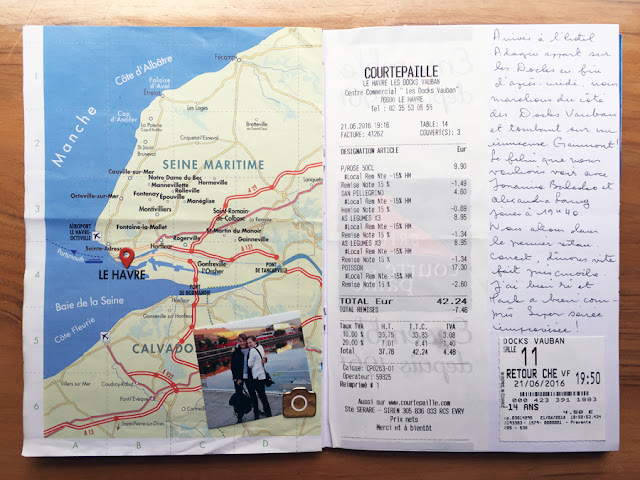 Manche
Côte d'Albâtre
Fécamp
Falaise
d'Aval
Étretat
Les Loges
Cap
d'Antifer
La Poterie
Cap d'Antifer
Bretteville
du-Grand-Caux
St-Jouin
Bruneval
Criquetot-Esneval
SEINE MARITIME
Notre Dame du Bec
Mannevillette
Hermeville
Rolleville
Octeville-sur-Mer
Fontenay
Épouville
Manéglise
Montivilliers
Saint-Romain-
de-Colbosc
AÉROPORT
LE HAVRE
OCTEVILLE
Fontaine-la-Mallet
Harfleur
Rogerville
Saint Martin du Manoir
Gainneville
Sainte-Adresse
Portsmouth
LE HAVRE
Gonfreville
l'Orsher
PONT
DE TANCARVILLE
PONT
DE NORMANDIE
Baie de la Seine
Honfleur
Côte Fleurie
CALVADO
Villers sur Mer
Coudray-Rabut
Pont-l'Évêque
St-Pierre-Dires
A 29
A 13
1
2
3
4
5
6
A
B
C
D
COURTEPAILLE
LE HAVRE LES DOCKS VAUBAN
Centre Commercial " Les Docks Vauban"
76600 LE HAVRE
Tel : 02 35 53 05 55
21.06.2016 19:16 TABLE: 14
FACTURE: 41262 COUVERT(S): 3
DESIGNATION ARTICLE Eur
P/ROSE 50CL 9.90
#Local Rem Nte -15% HM
Remise Note 15 % -1.49
SAN PELLEGRINO 4.60
#Local Rem Nte -15% HM
Remise Note 15 % -0.69
AS LEGUMES X3 8.95
#Local Rem Nte -15% HM
Remise Note 15 % -1.34
AS LEGUMES X3 8.95
#Local Rem Nte -15% HM
Remise Note 15 % -1.34
POISSON 17.30
#Local Rem Nte -15% HM
Remise Note 15 % -2.60
TOTAL Eur 42.24
TOTAL REMISES -7.46
Taux TVA H.T. T.T.C. TVA
10.00 % 30.75 33.83 3.08
20.00 % 7.01 8.41 1.40
Total 37.76 42.24 4.48
Caisse: CP0253-01
Operateur: 59325
Reimprimé # 1
Aussi sur www.courtepaille.com
Ste SERARE - SIREN 305 836 033 RCS EVRY
Prix nets
Merci et à bientôt
Arrivés à l'hôtel
Adagio appart sur
les Docks en fin
d'après-midi, nous
marchons du côté
des Docks Vauban
et tombons sur un
immense Gaumont!
Le film que nous
voulions voir avec
Alexandra Lamy
19h40
Nous allons dans
le premier
dînons vite
fait
J'ai bien ri et
a bien com-
pris. Super soirée
improvisée!
DOCKS VAUBAN
SALLE 11
RETOUR CHE VF
21/06/2016 19:50
000 423 391 1883
-14 ANS
4,50 €